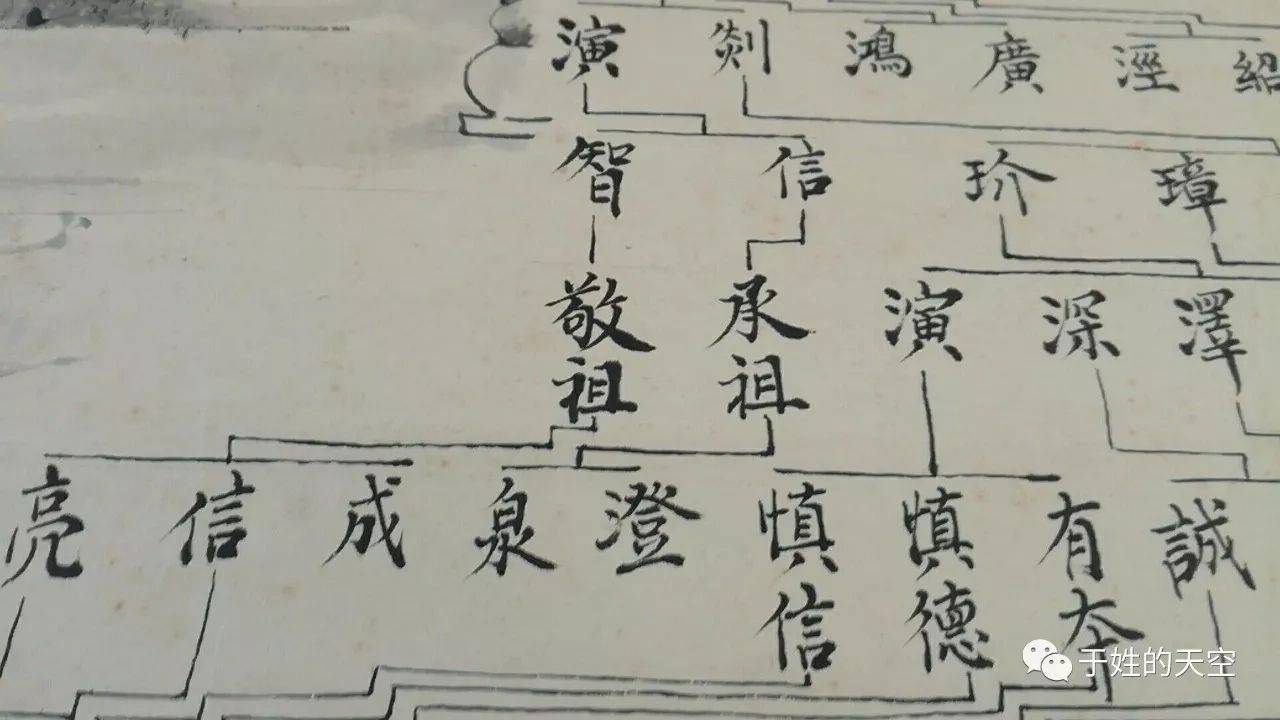 演 剡 鴻 廣 涇 紹
智 信 玠 璋
敬祖 承祖 演 深 澤
亮 信 成 泉 澄 慎信 慎德 有夲 誠
于姓的天空